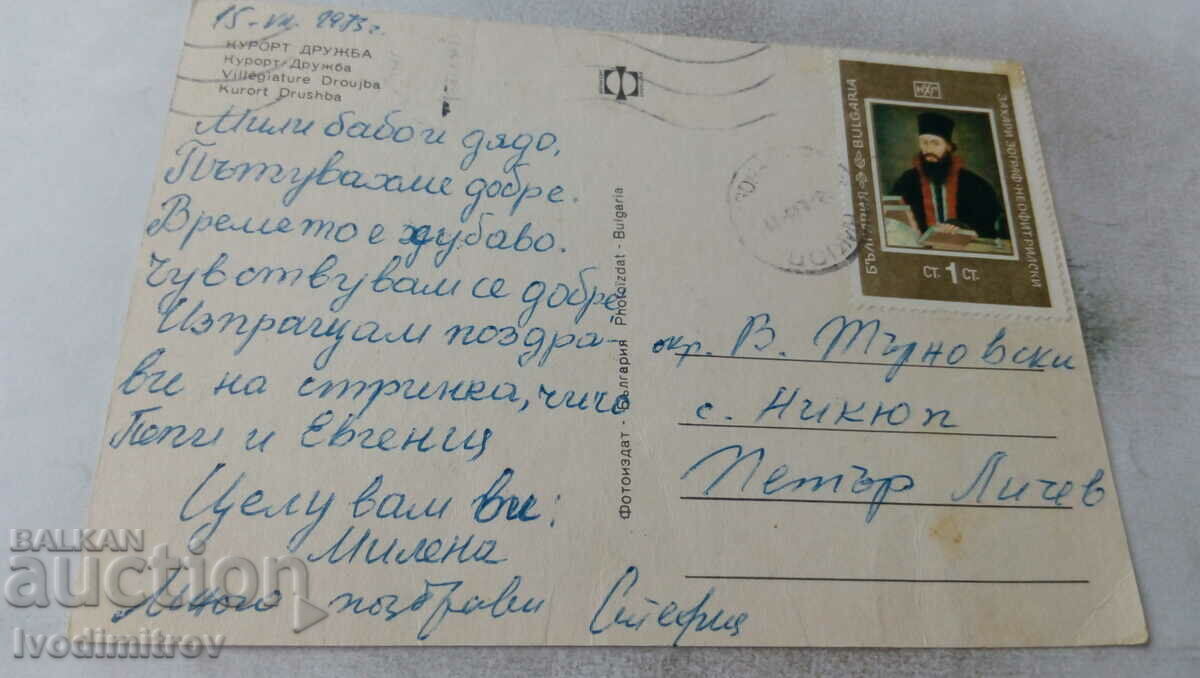 15-VII. 1973 г.
КУРОРТ ДРУЖБА
Курорт Дружба
Villegiature Droujba
Kurort Drushba
Мили бабо и дядо,
Пътувахме добре.
Времето е хубаво.
Чувствувам се добре
Изпращам поздра-
ви на стринка, чичо
Пепи и Евгения
Целувам ви:
Милена
Много поздрави Стефия
Фотоиздат - България Photoizdat - Bulgaria
БЪЛГАРИЯ BULGARIA
ЗАХАРИ ЗОГРАФ·НЕОФИТ РИЛСКИ
СТ. 1 СТ.
окр. В. Търновски
с. Никюп
Петър Личев
BALKAN
auction
Ivodimitrov